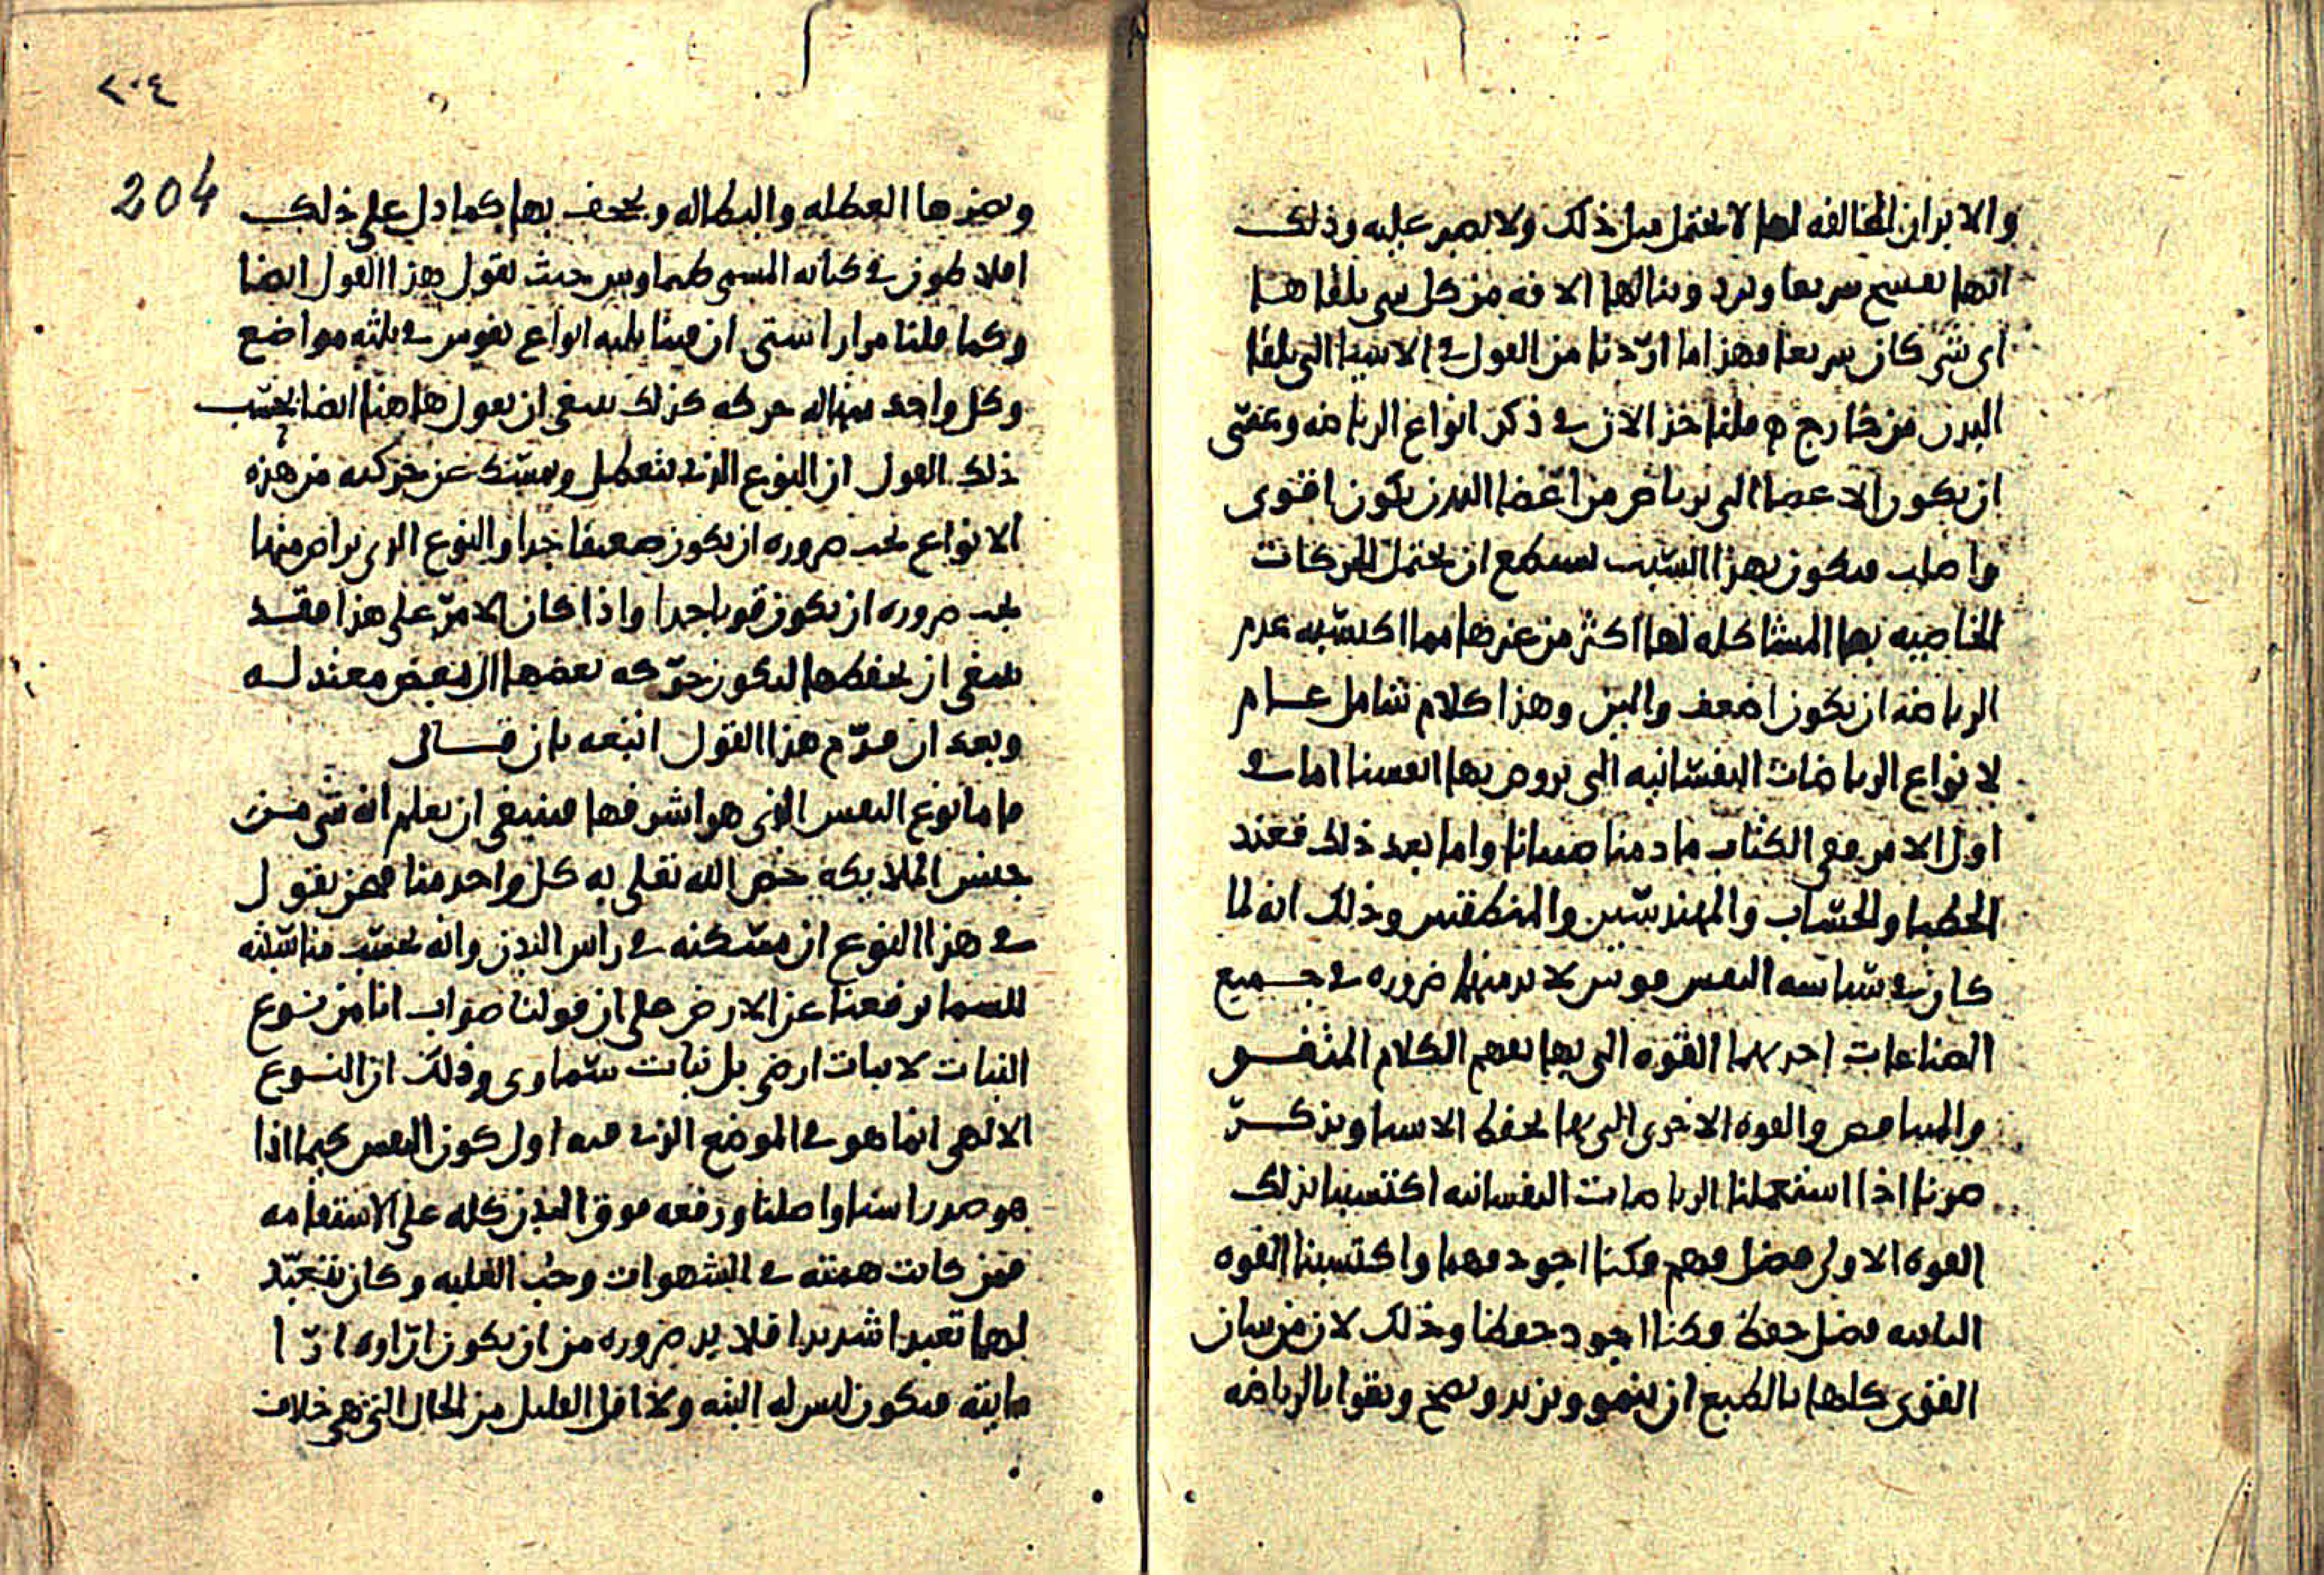 والابدان المخالفه لها لا تحتمل مثل ذلك ولا تصبر عليه وذلك
انها تفسخ سريعا وتبرد وينالها الافه من كل شي يلقاها
اى شى كان سريعا فهذا ما اردنا من القول فى الاشيا التى يلقا
البدن من خارج ثم قلنا خذ الان فى ذكر انواع الرياضه وعسى
ان يكون الاعضا التى ترتاض من اعضا البدن يكون اقوى
واصلب فيكون بهذا السبب تستطيع ان تحتمل الحركات
الخاصيه بها المشاكله لها اكثر من غيرها مما اكسبه عدم
الرياضه ان يكون اضعف والين وهذا كلام شامل عام
لانواع الرياضات النفسانيه التى نروض بها انفسنا اما فى
اول الامر ففى الكتاب ما دمنا صبيانا واما بعد ذلك فعند
الخطبا والحساب والمهندسين والمنطقيين وذلك انه لما
كان فى سياسه النفس قوتين لا بد منهما ضروره فى جميع
الصناعات احديهما القوه التى بها تفهم الكلام المتفق
والمتناقض والقوه الاخرى التى بها تحفظ الاشيا وتذكر
صرنا اذا استعملنا الرياضات النفسانيه اكتسبنا بذلك
القوه الاولى فضل فهم فكنا اجود فهما واكتسبنا القوه
الثانيه فضل حفظ فكنا اجود حفظا وذلك لان من شان
القوى كلها بالطبع ان ينمو ويزيد ويصح ويقوا بالرياضه
٢٠٤
204
ويضرها العطله والبطاله ويجحف بها كما دل على ذلك
افلاطون فى كتابه المسمى طيماوس حيث يقول هذا القول ايضا
وكما قلنا مرارا شتى ان فينا ثلثه انواع نفوس فى ثلثه مواضع
وكل واحد منها له حركه كذلك ينبغى ان نقول هاهنا ايضا بحسب
ذلك القول ان النوع الذى يتعطل ويمسك عن حركته من هذه
الانواع يجب ضروره ان يكون ضعيفا جدا والنوع الذى يراض منها
يجب ضروره ان يكون قويا جدا واذا كان الامر على هذا فقد
ينبغى ان نحفظها لتكون حركه بعضها الى بعض معتدله
وبعد ان قدم هذا القول اتبعه بان قال
فاما نوع النفس الذى هو اشرفها فينبغى ان نعلم انه شى من
جنس الملايكه خص الله تعلى به كل واحد منا فنحن نقول
فى هذا النوع ان مسكنه فى راس البدن وانه بحسب مناسبته
للسما يرفعنا عن الارض على ان قولنا صواب انا من نوع
النبات لا نبات ارضى بل نبات سماوى وذلك ان النوع
الالهى انما هو فى الموضع الذى فيه اول كون النفس كما اذا
هو صدر راسنا واصلنا ورفعه فوق البدن كله على الاستقامه
فمن كانت همته فى الشهوات وحب الغلبه وكان يتعبد
لها تعبدا شديدا فلا بد ضروره من ان يكون اراوه ارا
مايته فيكون ليس له البته ولا اقل القليل من الحال التى هى خلاف